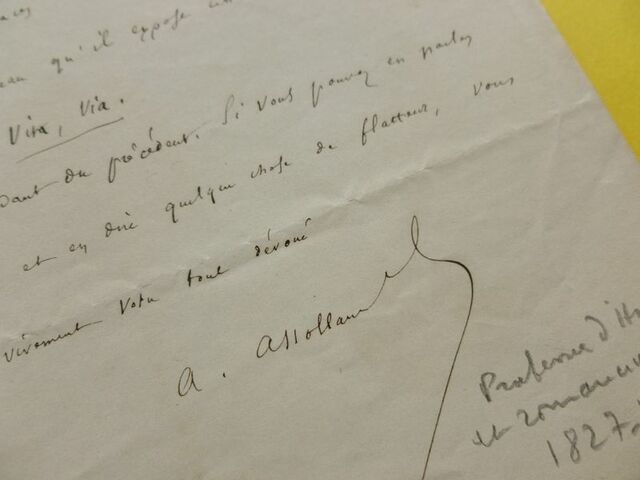 qu'il expose
Vita, Via.
du précédent. Si vous pouvez en parler
et en dire quelque chose de flatteur, vous
vivement votre tout dévoué
A. Assollant
Professeur d'His
et romancier
1827